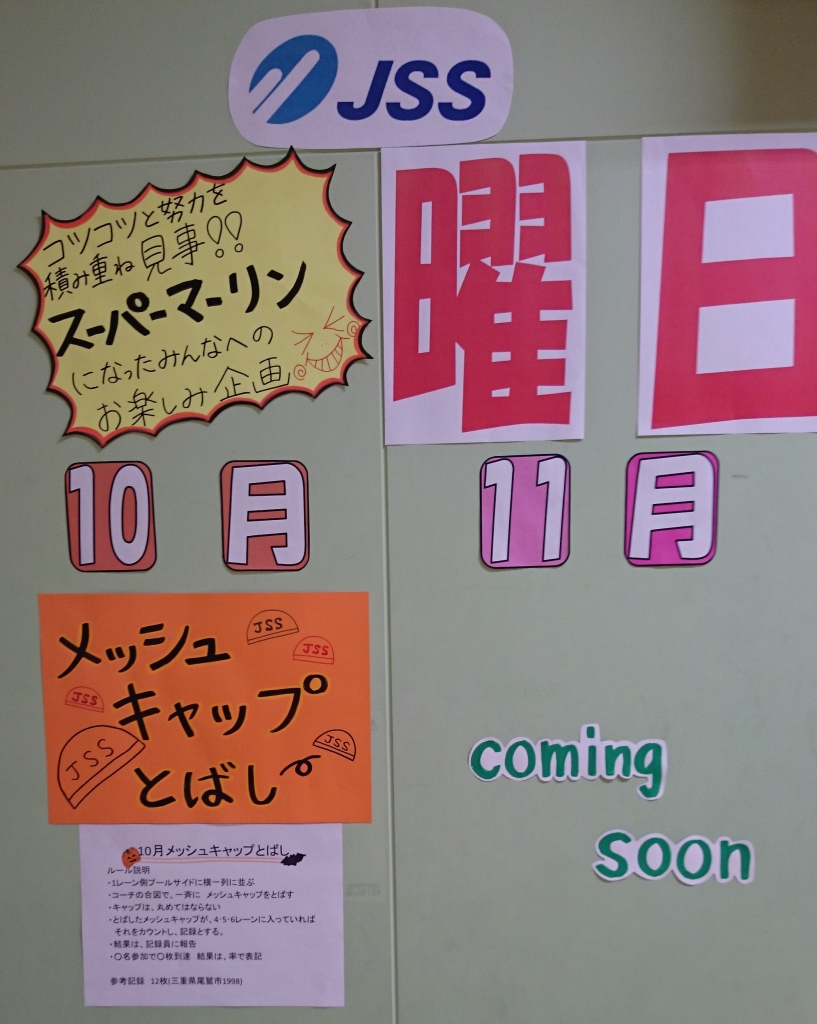 JSS
コツコツと努力を
積み重ね見事!!
スーパーマーリン
になったみんなへの
お楽しみ企画
曜日
10月
11月
メッシュ
キャップ
とばし
JSS
JSS
JSS
JSS
JSS
coming
soon
10月メッシュキャップとばし
ルール説明
・1レーン側プールサイドに横一列に並ぶ
・コーチの合図で、一斉に メッシュキャップをとばす
・キャップは、丸めてはならない
・とばしたメッシュキャップが、4・5・6レーンに入っていれば
それをカウントし、記録とする。
・結果は、記録員に報告
・〇名参加で〇枚到達 結果は、率で表記
参考記録 12枚(三重県尾鷲市1998)